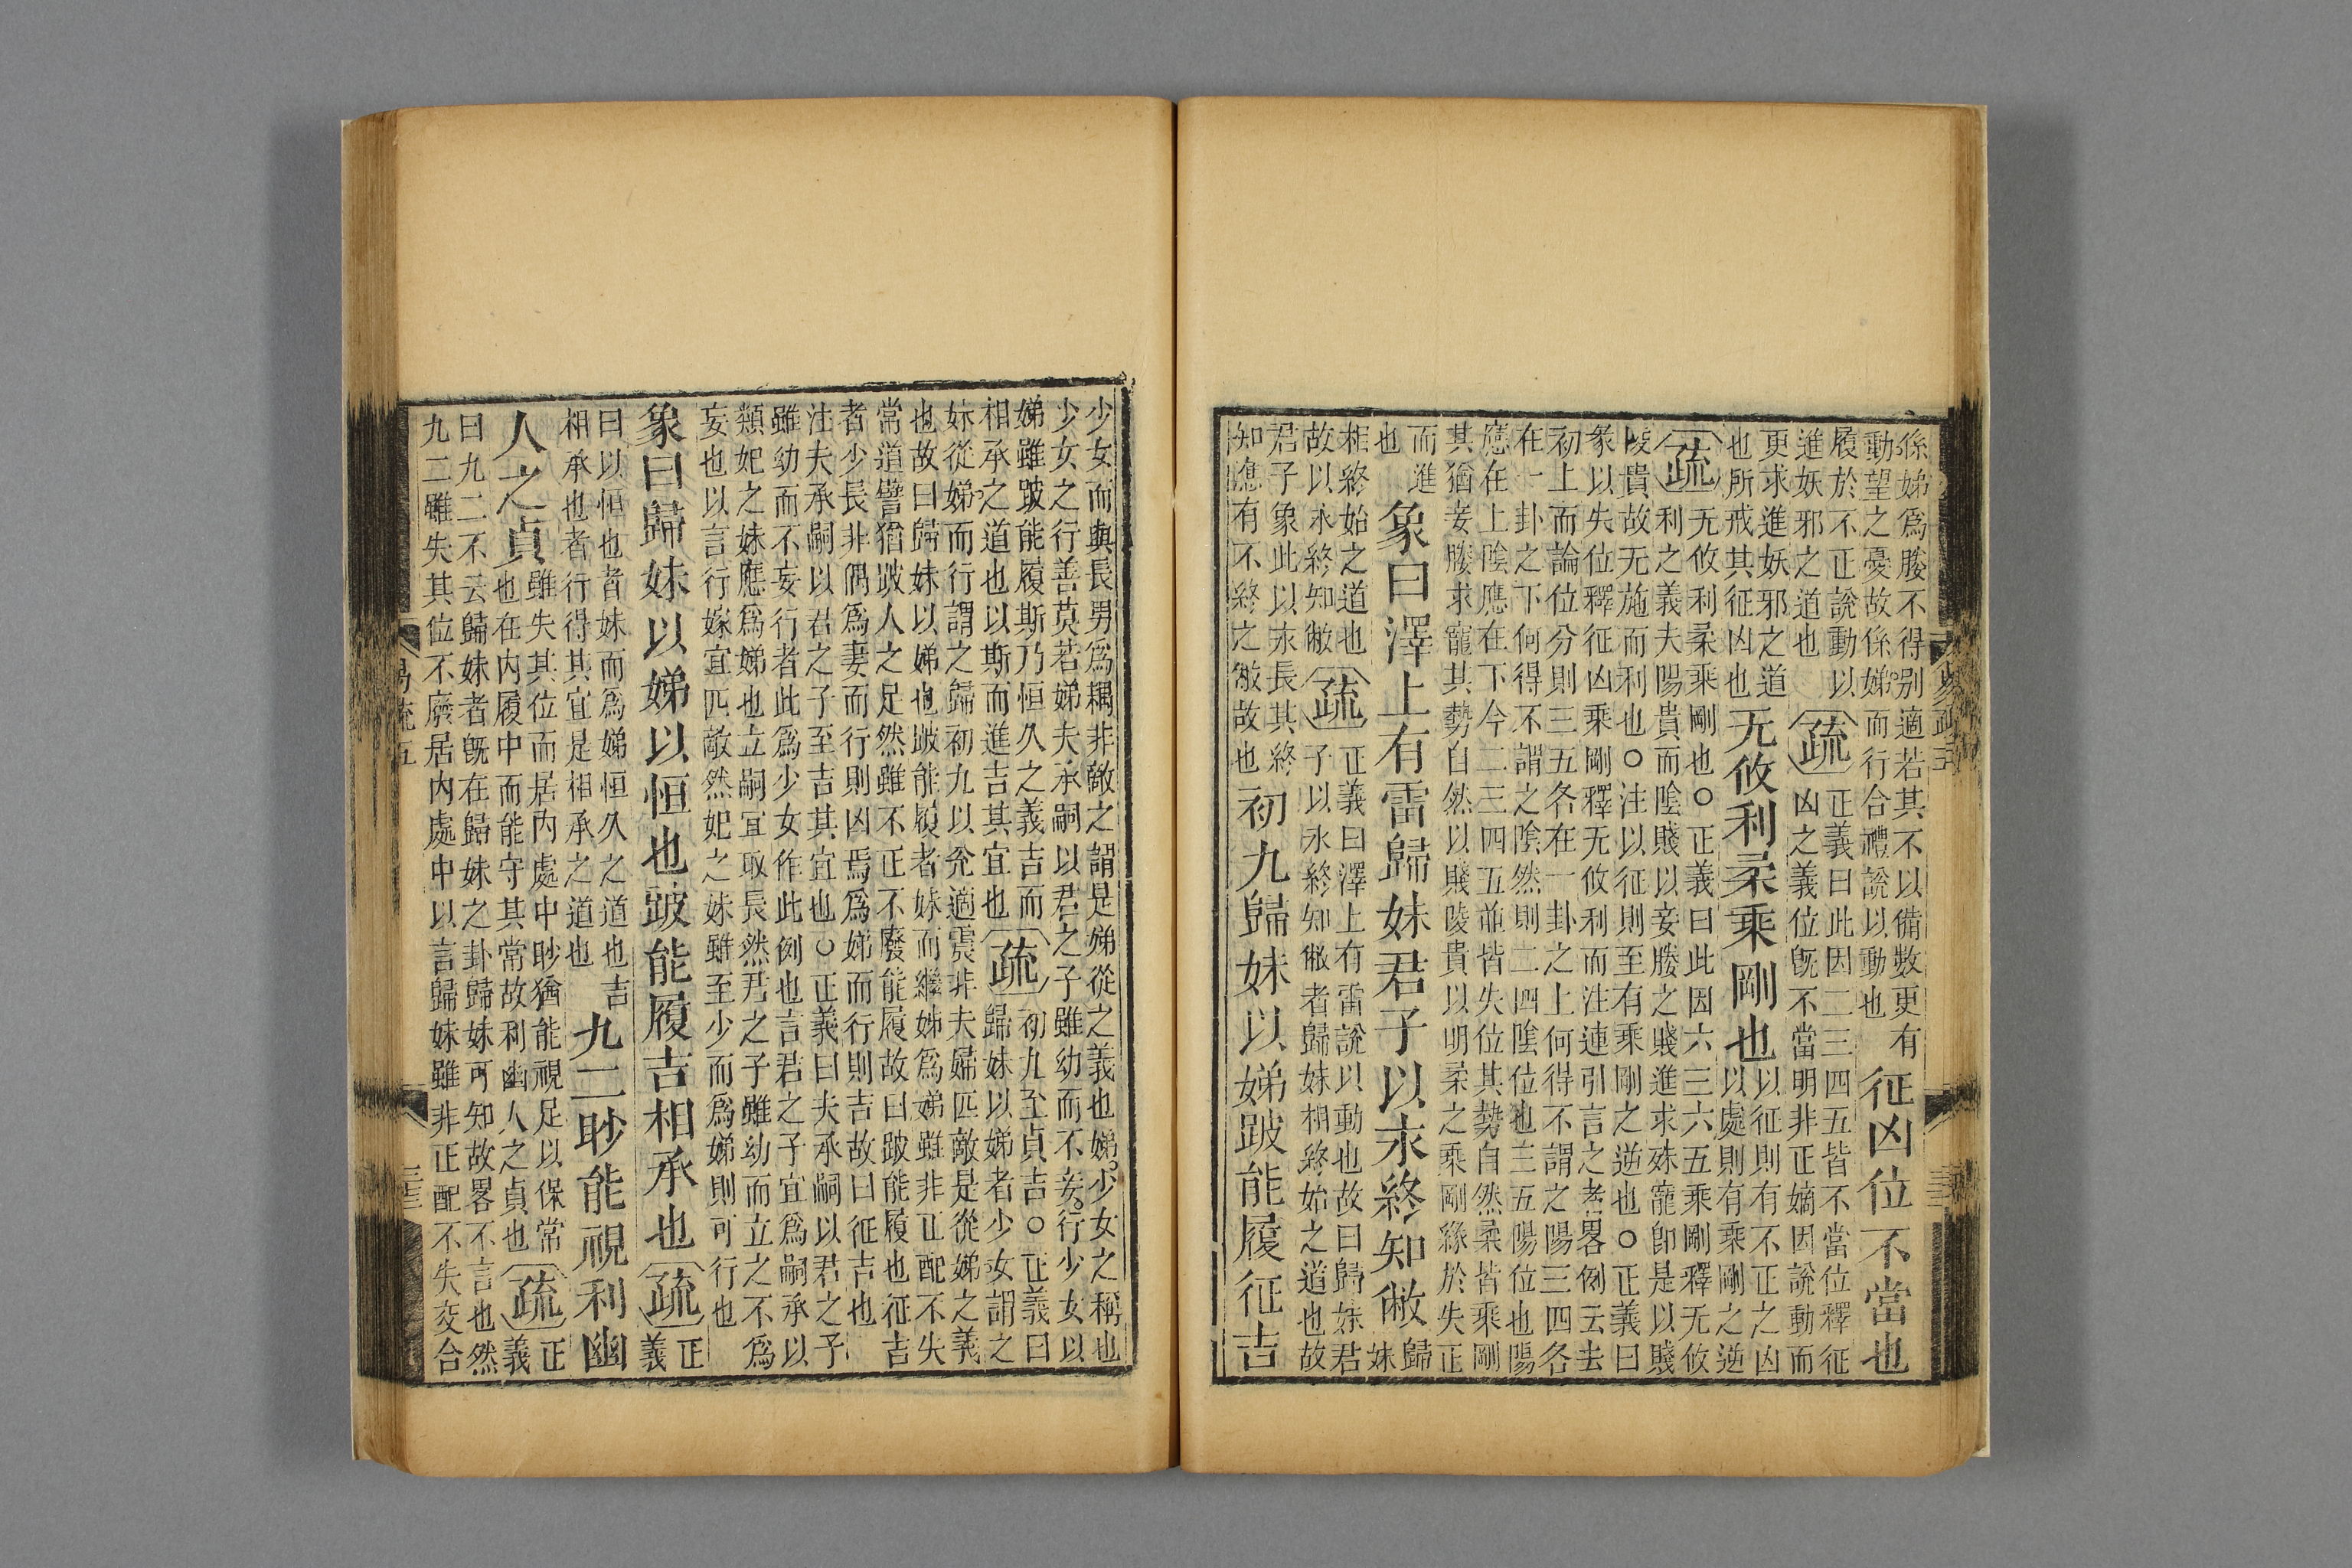 係娣爲媵不得别適若其不以備數更有
動望之憂故係娣而行合禮說以動也
征凶位不當也
履於不正說動以
進妖邪之道也
疏
正義曰此因二三四五皆不當位釋征
凶之義位既不當明非正嫡因說動而
更求進妖邪之道
也所戒其征凶也
无攸利柔乘剛也
以征則有不正之凶
以處則有乘剛之逆
疏
无攸利柔乘剛也○正義曰此因六三六五乘剛釋无攸
利之義夫陽貴而陰賤以妾媵之賤進求殊寵即是以賤
陵貴故无施而利也○注以征則至有乘剛之逆也○正義曰
彖以失位釋征凶乘剛釋无攸利而注連引言之者畧例云去
初上而論位分則三五各在一卦之上何得不謂之陽三四各
在一卦之下何得不謂之陰然則二四陰位也三五陽位也陽
應在上陰應在下今二三四五並皆失位其勢自然柔皆乘剛
其猶妾媵求寵其勢自然以賤陵貴以明柔之乘剛緣於失正
而進
也
象曰澤上有雷歸妹君子以永終知敝
歸
妹
相終始之道也
故以永終知敝
疏
正義曰澤上有雷說以動也故曰歸妹君
子以永終知敝者歸妹相終始之道也故
君子象此以永長其終
知應有不終之敝故也
初九歸妹以娣跛能履征吉
少女而與長男爲耦非敵之謂是娣從之義也娣少女之稱也
少女之行善莫若娣夫承嗣以君之子雖幼而不妄行少女以
娣雖跛能履斯乃恒久之義吉而
相承之道也以斯而進吉其宜也
疏
初九至貞吉○正義曰
歸妹以娣者少女謂之
妹從娣而行謂之歸初九以兌適震非夫婦匹敵是從娣之義
也故曰歸妹以娣也跛能履者妹而繼姊爲娣雖非正配不失
常道譬猶跛人之足然雖不正不廢能履故曰跛能履也征吉
者少長非偶爲妻而行則凶焉爲娣而行則吉故曰征吉也
注夫承嗣以君之子至吉其宜也○正義曰夫承嗣以君之子
雖幼而不妄行者此爲少女作此例也言君之子宜爲嗣承以
類妃之妹應爲娣也立嗣宜取長然君之子雖幼而立之不爲
妄也以言行嫁宜匹敵然妃之妹雖至少而爲娣則可行也
象曰歸妹以娣以恒也跛能履吉相承也
疏
正
義
曰以恒也者妹而爲娣恒久之道也吉
相承也者行得其宜是相承之道也
九二眇能視利幽
人之貞
雖失其位而居内處中眇猶能視足以保常
也在内履中而能守其常故利幽人之貞也
疏
正
義
曰九二不云歸妹者既在歸妹之卦歸妹可知故畧不言也然
九二雖失其位不廢居内處中以言歸妹雖非正配不失交合